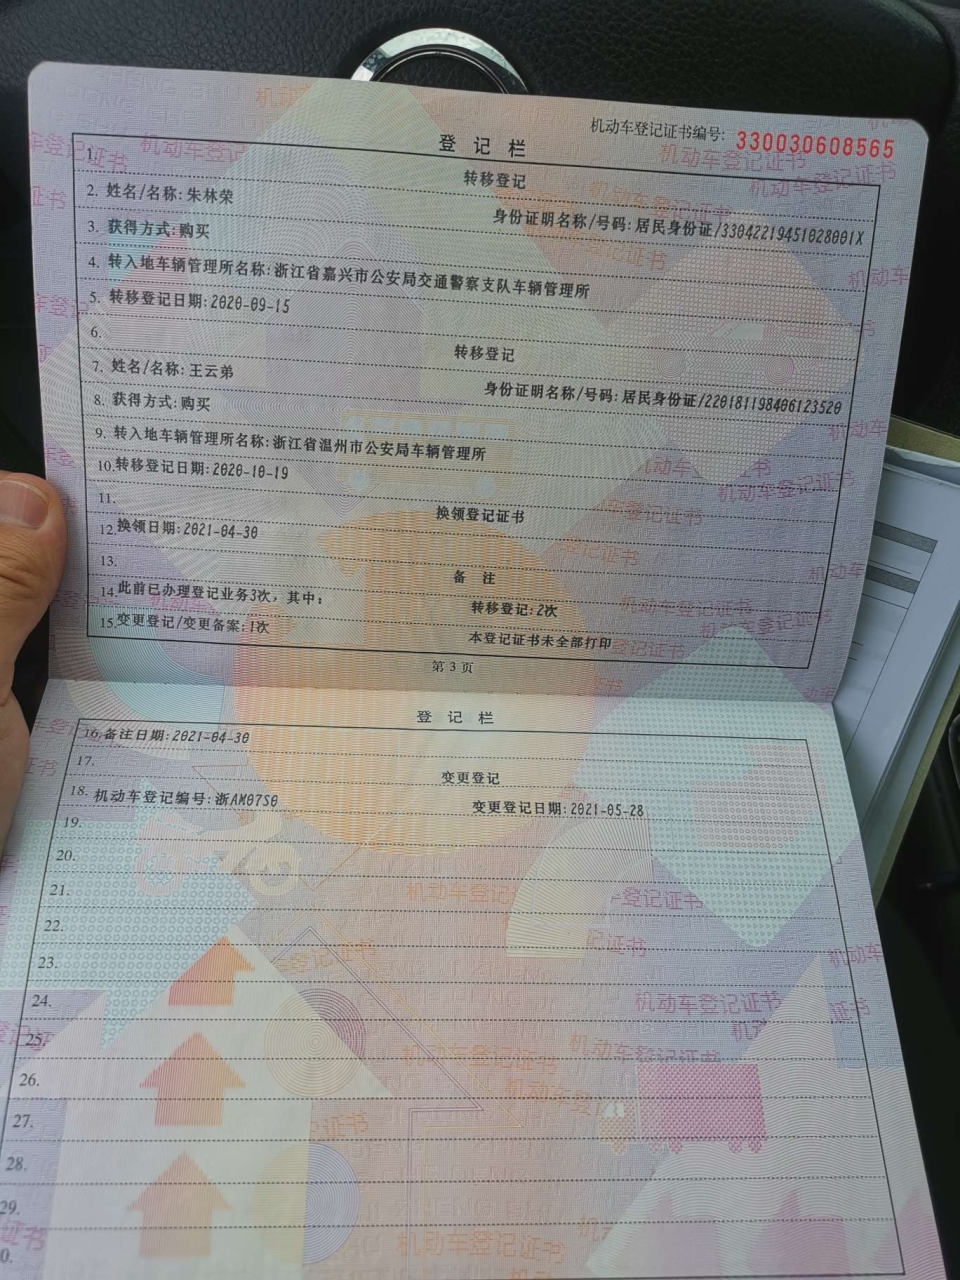 机动车登记证书编号: 330030608565
登记栏
1. 转移登记
2. 姓名/名称: 朱林荣 身份证明名称/号码: 居民身份证/33042219451028001X
3. 获得方式: 购买
4. 转入地车辆管理所名称: 浙江省嘉兴市公安局交通警察支队车辆管理所
5. 转移登记日期: 2020-09-15
6. 转移登记
7. 姓名/名称: 王云弟 身份证明名称/号码: 居民身份证/220181198406123520
8. 获得方式: 购买
9. 转入地车辆管理所名称: 浙江省温州市公安局车辆管理所
10. 转移登记日期: 2020-10-19
11. 换领登记证书
12. 换领日期: 2021-04-30
13. 备注
14. 此前已办理登记业务3次，其中: 转移登记: 2次
15. 变更登记/变更备案: 1次 本登记证书未全部打印
第 3 页
登记栏
16. 备注日期: 2021-04-30
17. 变更登记
18. 机动车登记编号: 浙AM07S0 变更登记日期: 2021-05-28
19.
20.
21.
22.
23.
24.
25.
26.
27.
28.
29.